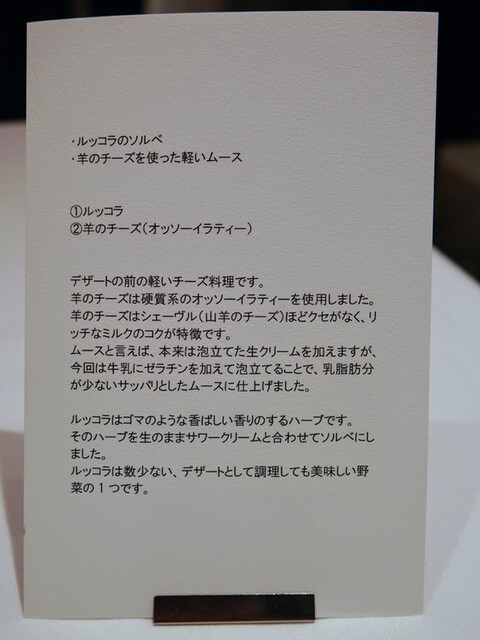 ・ルッコラのソルベ
・羊のチーズを使った軽いムース
①ルッコラ
②羊のチーズ(オッソーイラティー)
デザートの前の軽いチーズ料理です。
羊のチーズは硬質系のオッソーイラティーを使用しました。
羊のチーズはシェーヴル(山羊のチーズ)ほどクセがなく、リ
ッチなミルクのコクが特徴です。
ムースと言えば、本来は泡立てた生クリームを加えますが、
今回は牛乳にゼラチンを加えて泡立てることで、乳脂肪分
が少ないサッパリとしたムースに仕上げました。
ルッコラはゴマのような香ばしい香りのするハーブです。
そのハーブを生のままサワークリームと合わせてソルベにし
ました。
ルッコラは数少ない、デザートとして調理しても美味しい野
菜の1つです。